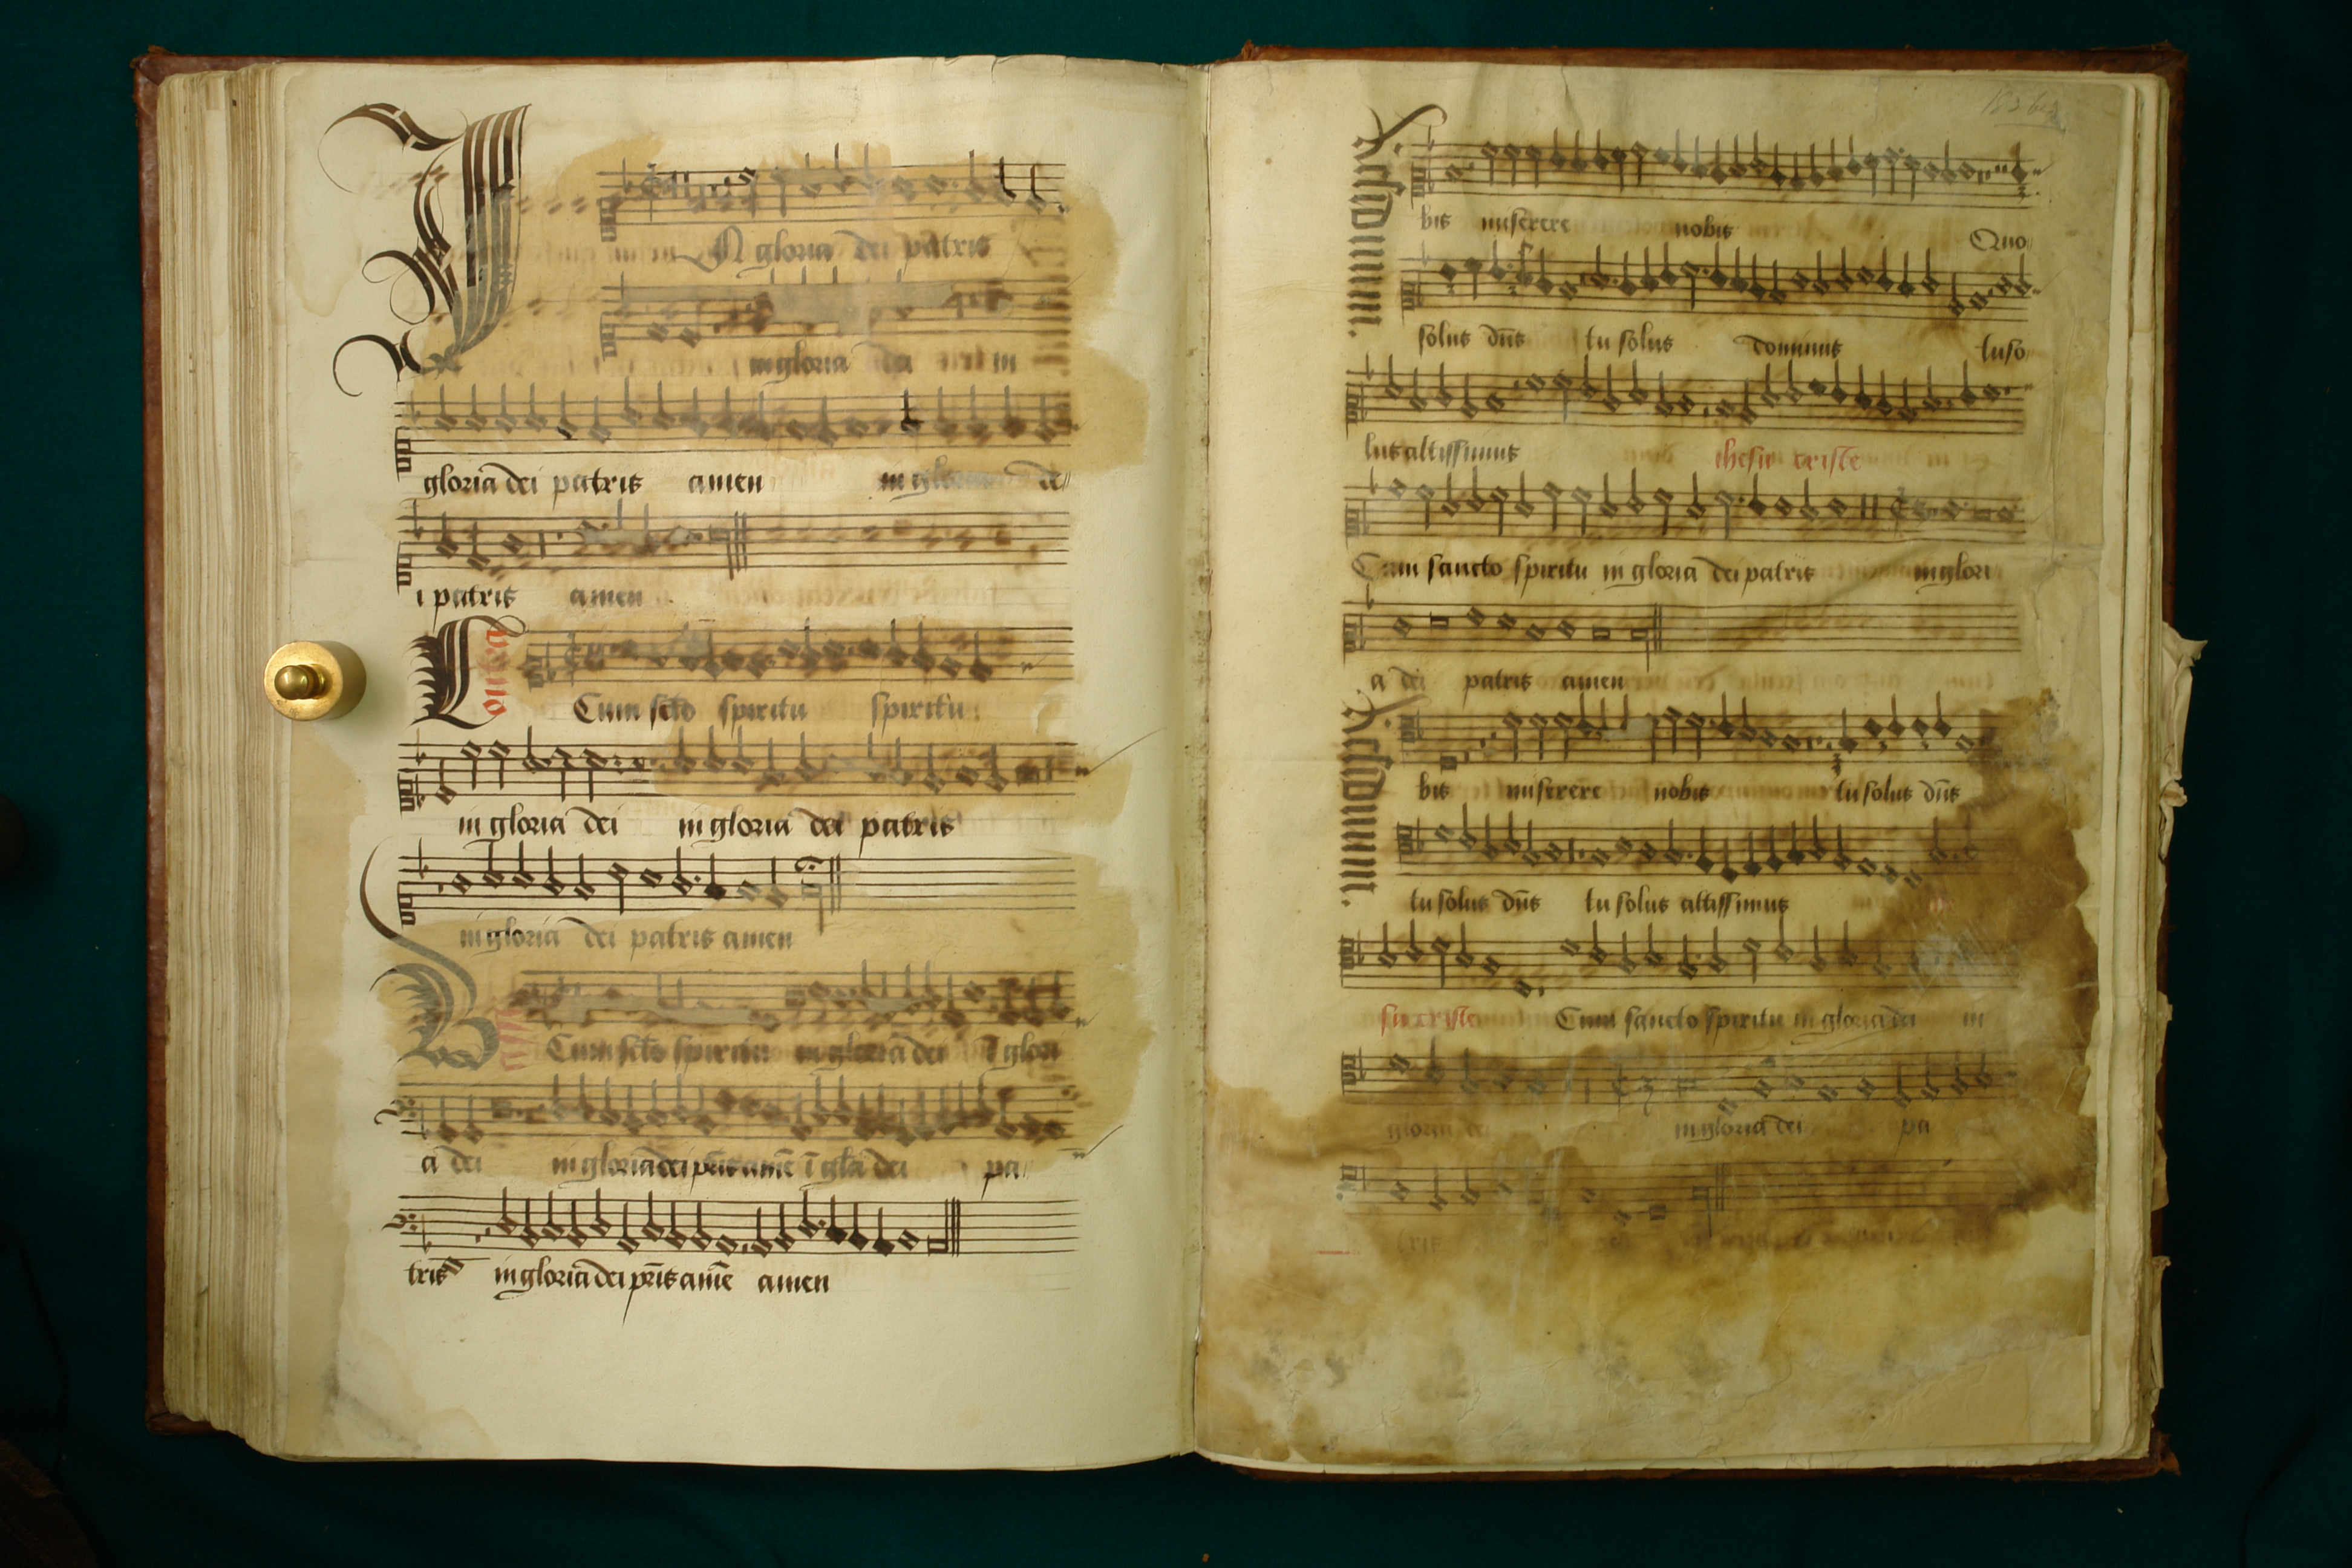 In gloria dei patris
in gloria dei in
gloria dei patris amen in gloria de
i patris amen
Cum scto spiritu spiritu
in gloria dei in gloria dei patris
in gloria dei patris amen
Cum scto spiritu in gloria dei ī glori
a dei in gloria dei pris amē ī gla dei pa
tris in gloria dei pris amē amen
Residuum.
bis miserere nobis Quo
solus dns tu solus dominus tu so
lus altissimus ihesu criste
Cum sancto spiritu in gloria dei patris in glori
a dei patris amen
Residuum.
bis miserere nobis tu solus dns
tu solus dns tu solus altissimus
su criste Cum sancto spiritu in gloria dei in
gloria dei in gloria dei pa
tris